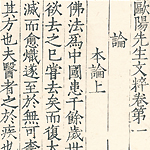 歐陽先生文粹卷第一
論
本論上
佛法爲中國患千餘歲世
欲去之已嘗去矣而復大
滅而愈熾遂至於無可奈
其方也夫醫者之於疾也